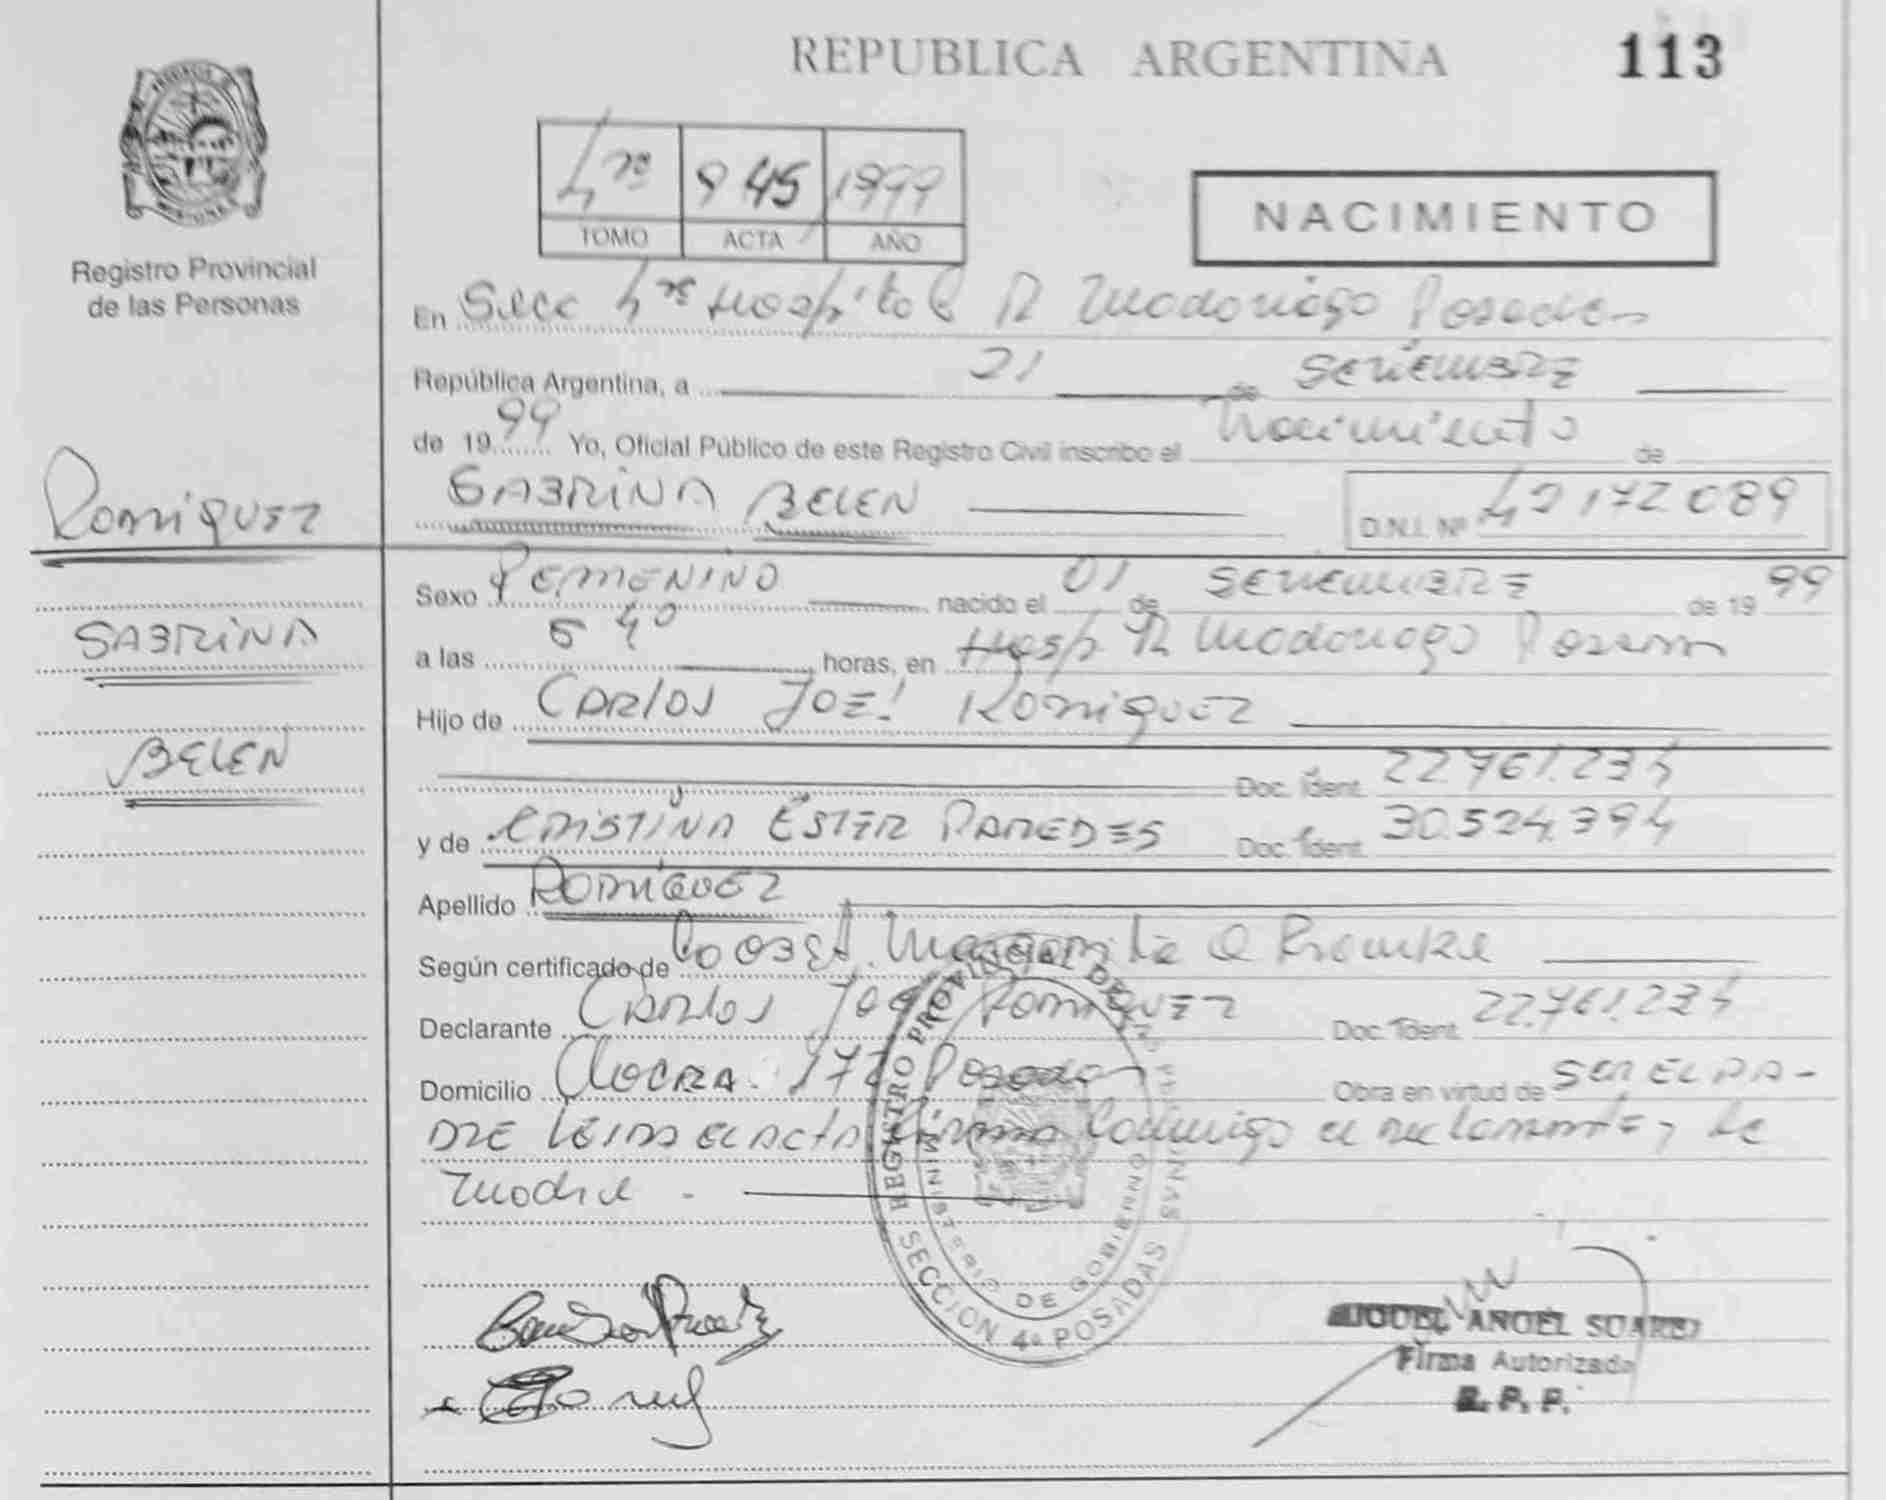 REPUBLICA ARGENTINA
113
Registro Provincial
de las Personas
4ro 945 1999
TOMO ACTA AÑO
NACIMIENTO
En Secc 4ta Hospital R Madariaga Posadas
República Argentina, a 21 de SETIEMBRE
de 1999 Yo, Oficial Público de este Registro Civil inscribo el Nacimiento de
SABRINA BELEN D.N.I. Nº 42172089
RODRIQUEZ
SABRINA
BELEN
Sexo FEMENINO nacido el 01 de SETIEMBRE de 1999
a las 5 40 horas, en Hosp. R Madariaga
Hijo de CARLOS JOSE RODRIQUEZ
Doc. Ident. 22.761.234
y de CRISTINA ESTER PAREDES Doc. Ident. 30.524.394
Apellido RODRIGUEZ
Según certificado de Margarita
Declarante CARLOS JOSE RODRIQUEZ Doc. Ident. 22.761.234
Domicilio 172 Posadas Obra en virtud de SER EL PA-
DRE LEIDA EL ACTA firma conmigo el declarante y la
madre -
REGISTRO PROVINCIAL DE LAS PERSONAS
MINISTERIO DE GOBIERNO
SECCION 4ª POSADAS
MIGUEL ANGEL SUAREZ
Firma Autorizada
R. P. P.